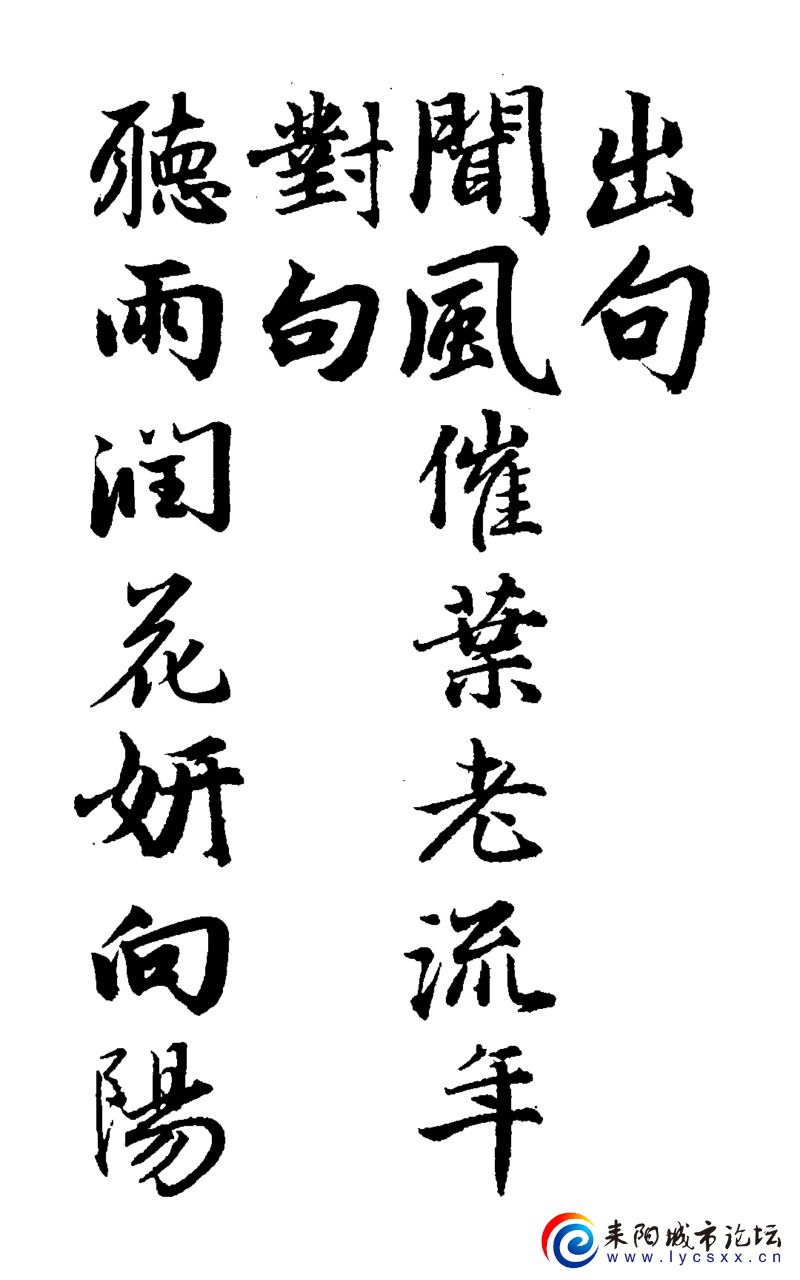 出句
聞風催葉老流年
對句
聴雨润花妍向陽
耒阳城市论坛
www.lycsxx.cn